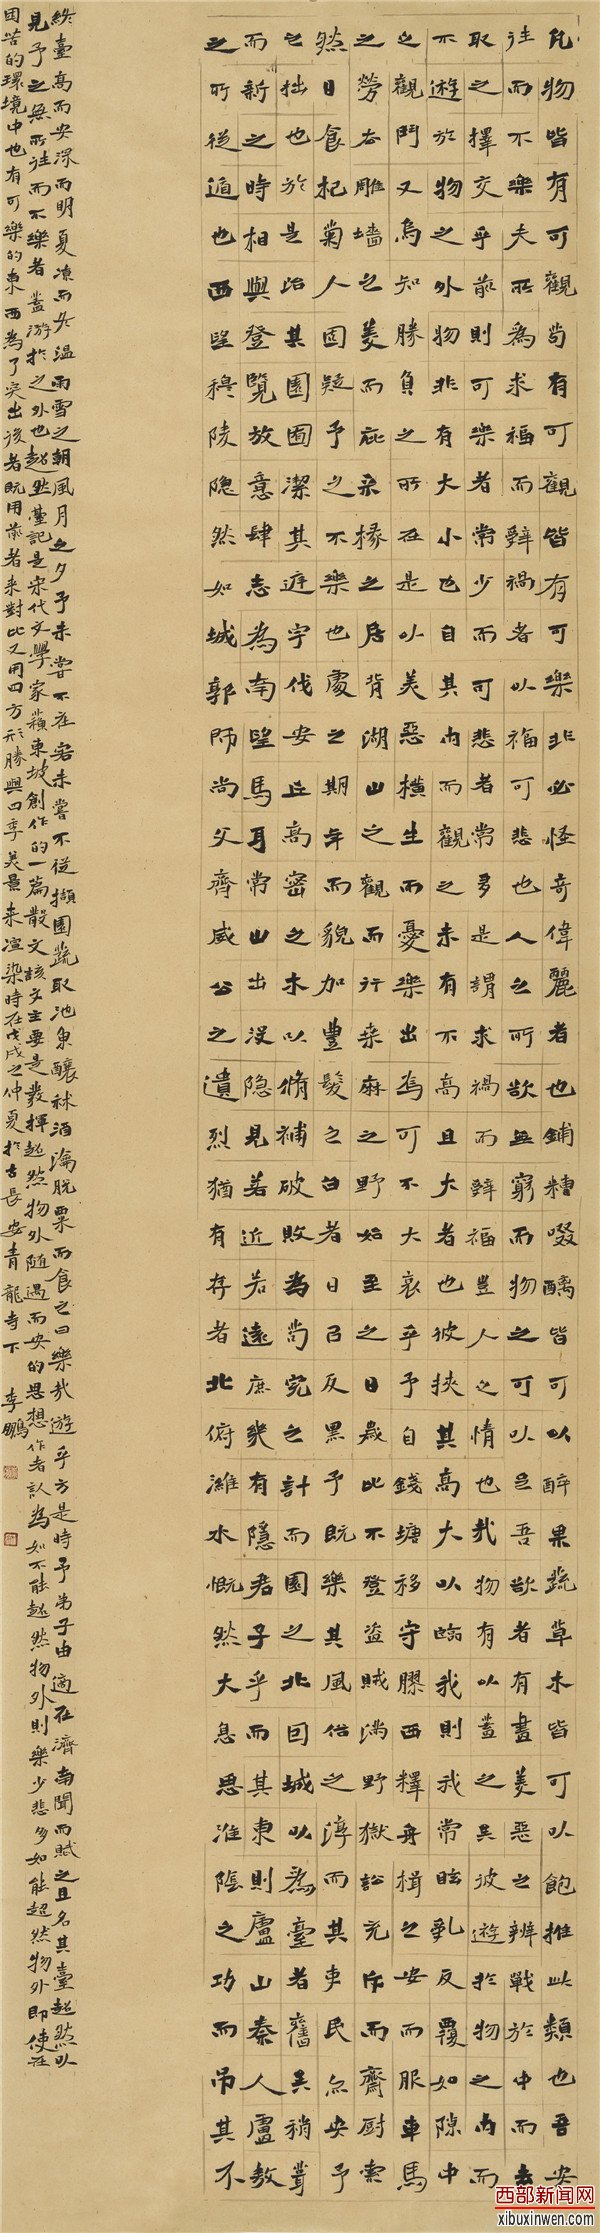 凡物皆有可觀苟有可觀皆有可樂非必怪奇偉麗者也餔糟啜醨皆可以醉果蔬草木皆可以飽推此類也吾安
往而不樂夫所為求福而辭禍者以福可悲也人之所欲無窮而物之可以足吾欲者有盡美惡之辨戰於中而去
取之擇交乎前則可樂者常少而可悲者常多是謂求禍而辭福豈人之情也哉物有以蓋之矣彼遊於物之內而
不遊於物之外物非有大小也自其內而觀之未有不高且大者也彼挾其高大以臨我則我常眩亂反覆如隙中
之觀鬥又烏知勝負之所在是以美惡橫生而憂樂出焉可不大哀乎予自錢塘移守膠西釋舟楫之安而服車馬
之勞去雕墻之美而庇采椽之居背湖山之觀而行桑麻之野始至之日歲比不登盜賊滿野獄訟充斥而齋廚索
然日食杞菊人固疑予之不樂也處之期年而貌加豐髮之白者日已反黑予既樂其風俗之淳而其吏民亦安予
之拙也於是治其園囿潔其庭宇伐安丘高密之木以脩補破敗為苟完之計而園之北因城以為臺者舊矣稍葺
而新之時相與登覽放意肆志為南望馬耳常山出沒隱見若近若遠庶幾有隱君子乎而其東則廬山秦人盧敖
之所從遁也西望穆陵隱然如城郭師尚父齊威公之遺烈猶有存者北俯濰水慨然大息思淮陰之功而弔其不
終臺高而安深而明夏涼而冬溫雨雪之朝風月之夕予未嘗不在客未嘗不從擷園蔬取池魚釀秫酒瀹脫粟而食之曰樂哉遊乎方是時予弟子由適在濟南聞而賦之且名其臺超然以
見予之無所往而不樂者蓋游於之外也超然臺記是宋代文學家蘇東坡創作的一篇散文該文主要是發揮超然物外随遇而安的思想作者認為如不能超然物外則樂少悲多如能超然物外即使在
困苦的環境中也有可樂的東西為了突出後者既用前者來對比又用四方形勝與四季美景來渲染時在戊戌之仲夏於古長安青龍寺下 李鵬
西部新闻网
xibuxinwen.com